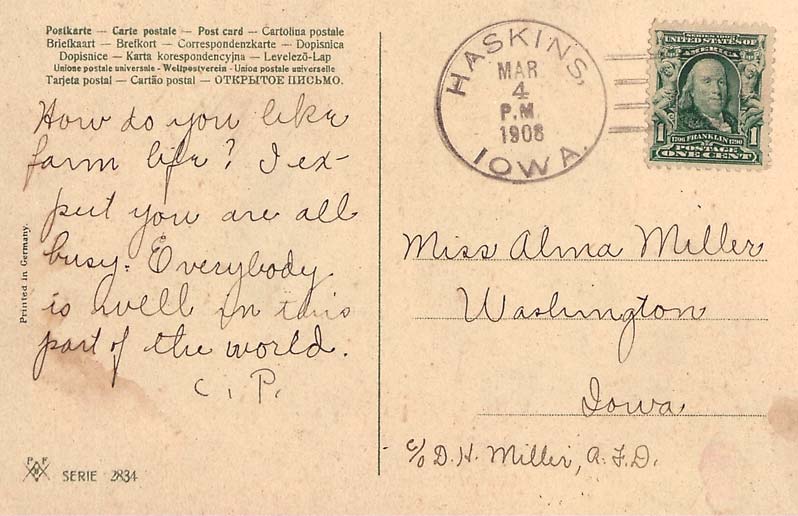 Postkarte — Carte postale — Post card — Cartolina postale
Briefkaart — Brefkort — Correspondenzkarte — Dopisnica
Dopisnice — Karta korespondencyjna — Levelező-Lap
Unione postale universale - Weltpostverein - Union postale universelle
Tarjeta postal — Cartão postal — ОТКРЫТОЕ ПИСЬМО.
How do you like
farm life? I ex-
pect you are all
busy. Everybody
is well in this
part of the world.
C. P.
Printed in Germany.
P F
SERIE 2834
HASKINS,
MAR
4
P.M.
1908
IOWA.
SERIES 1902
UNITED STATES OF
AMERICA
1706 FRANKLIN 1790
1 POSTAGE 1
ONE CENT
Miss Alma Miller
Washington
Iowa
c/o D. H. Miller, R.F.D.